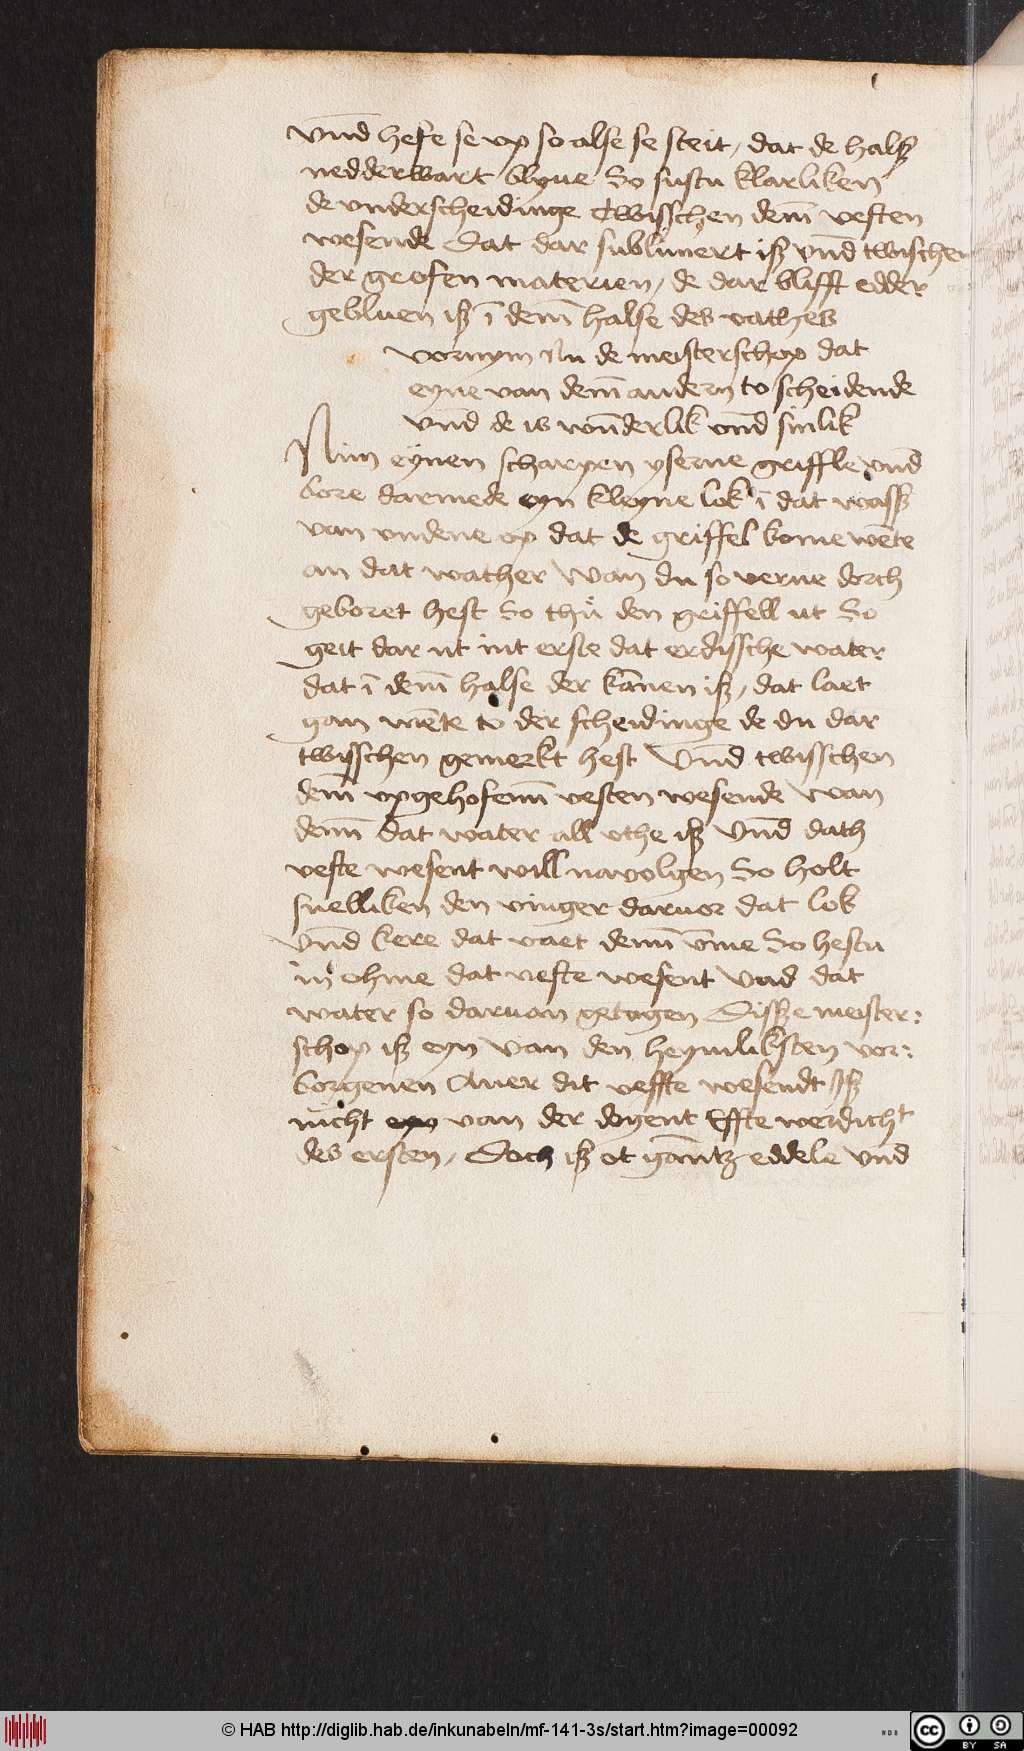 vnd̄ hefe se vp so alse se steit, dat de halß
nedderwart blyue So sustu klarliken
de vnderscheidinge twisschen dem̄ vesten
wesende Dat dar sublimert iß vnd̄ twischen
der grofen materien, de dar blifft edder
gebluen iß ī dem̄ halse des vathes
vornym Nu de meisterschop dat
eyne van dem̄ andern to scheidende
vnd̄ de is wūderlik vnd̄ sinlik
Nim eynen scharpen yserne griffle vnd̄
bore darmede eyn kleyne lok ī dat waß
van vndene op dat de griffel kome wēte
an dat wather Wan du so verne dorch
geboret hest So thů den griffell ut So
geit dar ut int erste dat erdissche water
dat ī dem̄ halse der kānen iß, dat laet
gan wēte to der scheidinge de du dar
twisschen gemerkt hest Vnd̄ twisschen
dem̄ vpgehofenm̄ vesten wesende Wan
denn̄ dat water all vthe iß Vnd̄ dath
veste wesent will navolgen So holt
snelliken den vinger daruor dat lok
vnd̄ kere dat vaet denn̄ v̄me So hestu
in ohme dat veste wesent vnd dat
water so daruan getogen Disße meister:
schop iß eyn van den heymliksten vor:
borgenen Auer dit veffte wesendt Iß
nicht van der dogent Effte werdicht
des ersten, Doch iß ot gāntz eddele vnd̄
© HAB http://diglib.hab.de/inkunabeln/mf-141-3s/start.htm?image=00092
BY SA